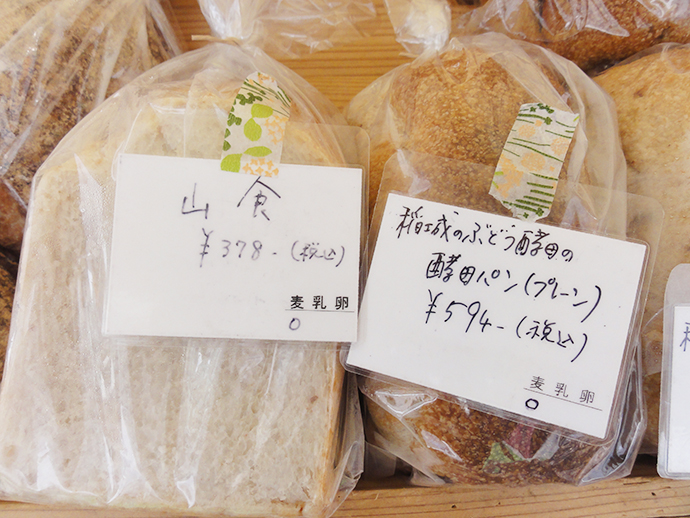 山食
¥378-(税込)
麦乳卵
○
稲城のぶどう酵母の
酵母パン(プレーン)
¥594-(税込)
麦乳卵
○